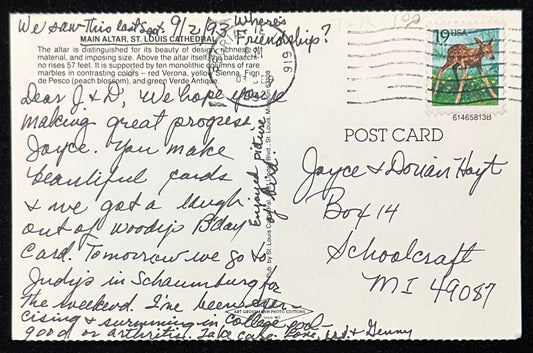 We saw this last Sat. 9/2/93
MAIN ALTAR, ST. LOUIS CATHEDRAL
The altar is distinguished for its beauty of design, richness of
material, and imposing size. Above the altar itself the baldachin
no rises 57 feet. It is supported by ten monolithic columns of rare
marbles in contrasting colors – red Verona, yellow Sienna, Fiori
de Pesco (peach blossom), and green Verde Antique.
Where's
Friendship?
Dear J & D, We hope you're
making great progress
Joyce. You make
beautiful cards
& we got a laugh
out of Woody's B'day
Card. Tomorrow we go to
Judy's in Schaumburg for
the weekend. I've been exer-
cising & swimming in College pool -
good for arthritis. Take care. Love, & Genny
Enjoyed picture
ART GROSSMANN PHOTO EDITIONS
916
19 USA
61465813B
POST CARD
Joyce & Dorian Hoyt
Box 14
Schoolcraft
MI 49087